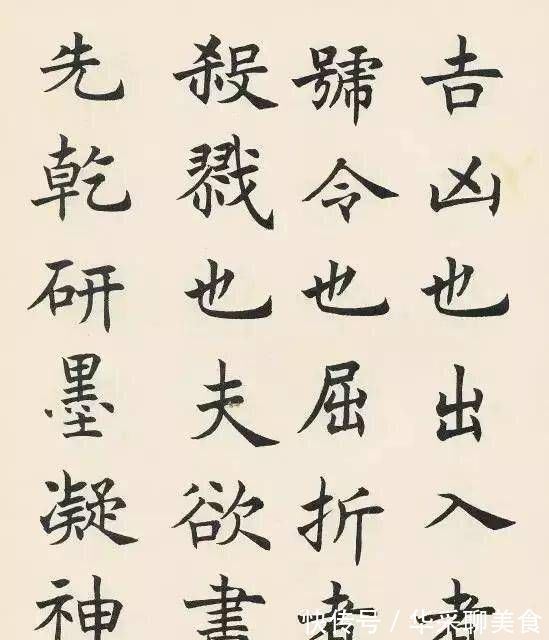 吉凶也出入者
號令也屈折者
殺戮也夫欲書
先乾研墨凝神
快传号／华采聊美食